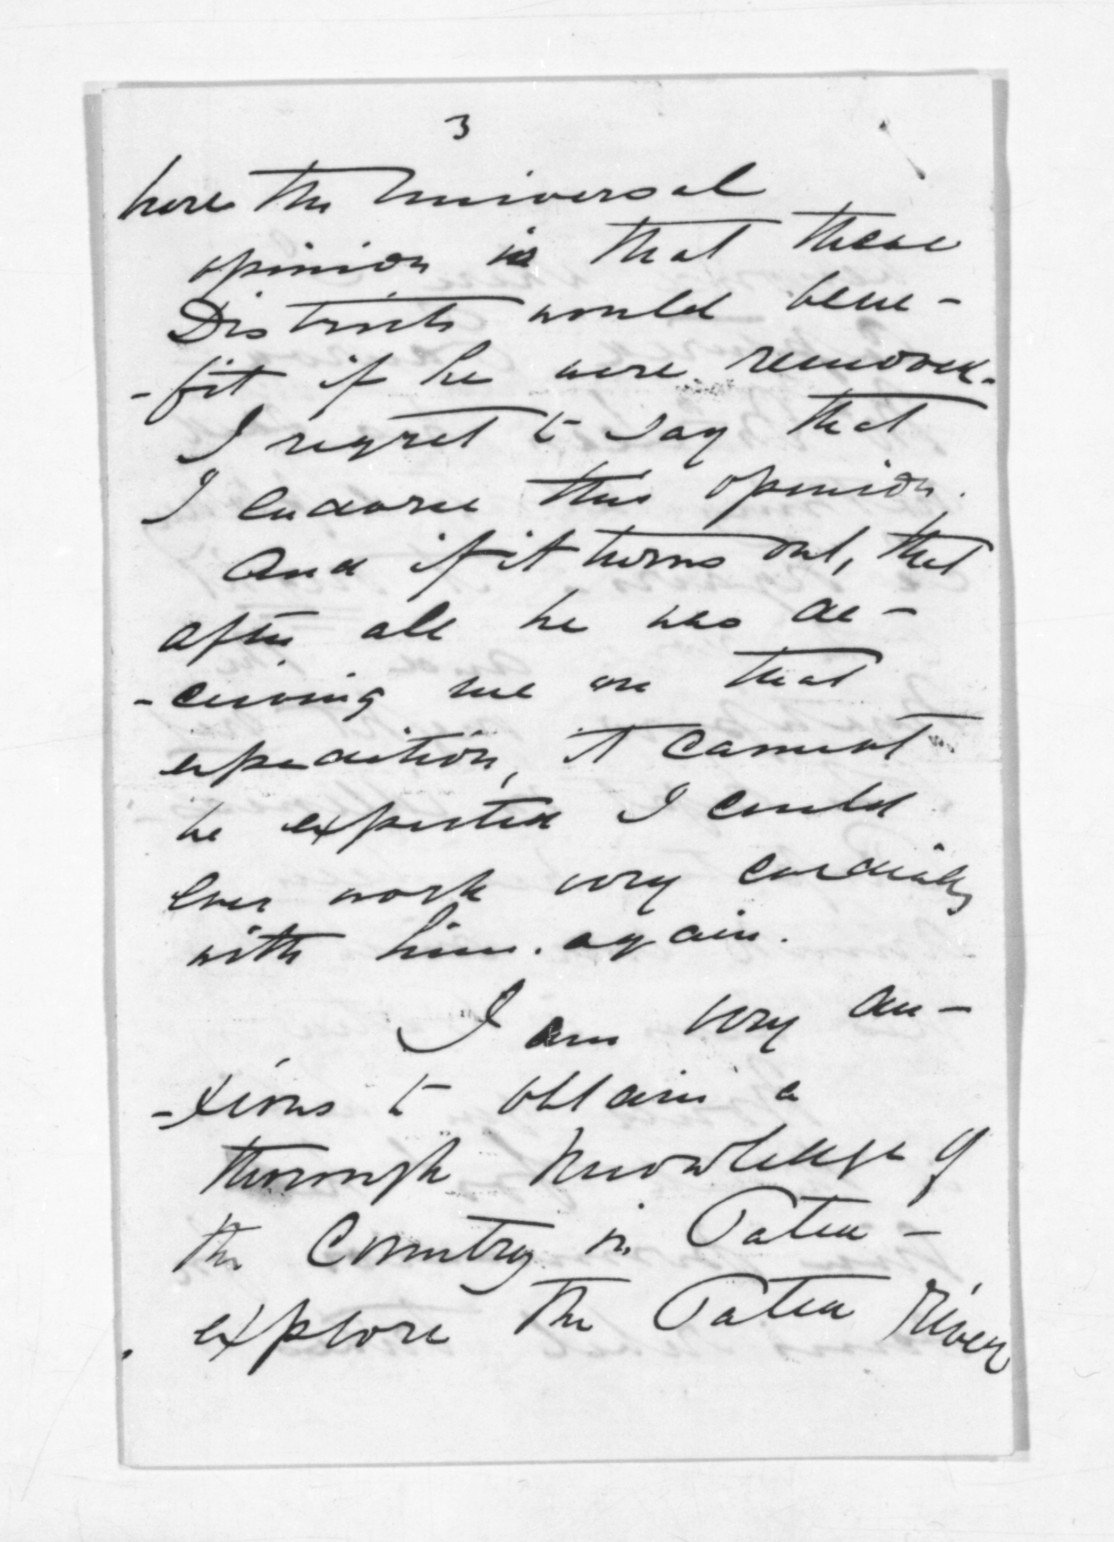 3
here the universal
opinion is that these
Districts would bene-
-fit if he were removed.
I regret to say that
I endorse this opinion.
And if it turns out, that
after all he was de-
-ceiving me on that
expedition, it cannot
be expected I could
ever work very cordially
with him again.
I am very an-
-xious to obtain a
thorough knowledge of
the Country in Patea -
explore the Patea River